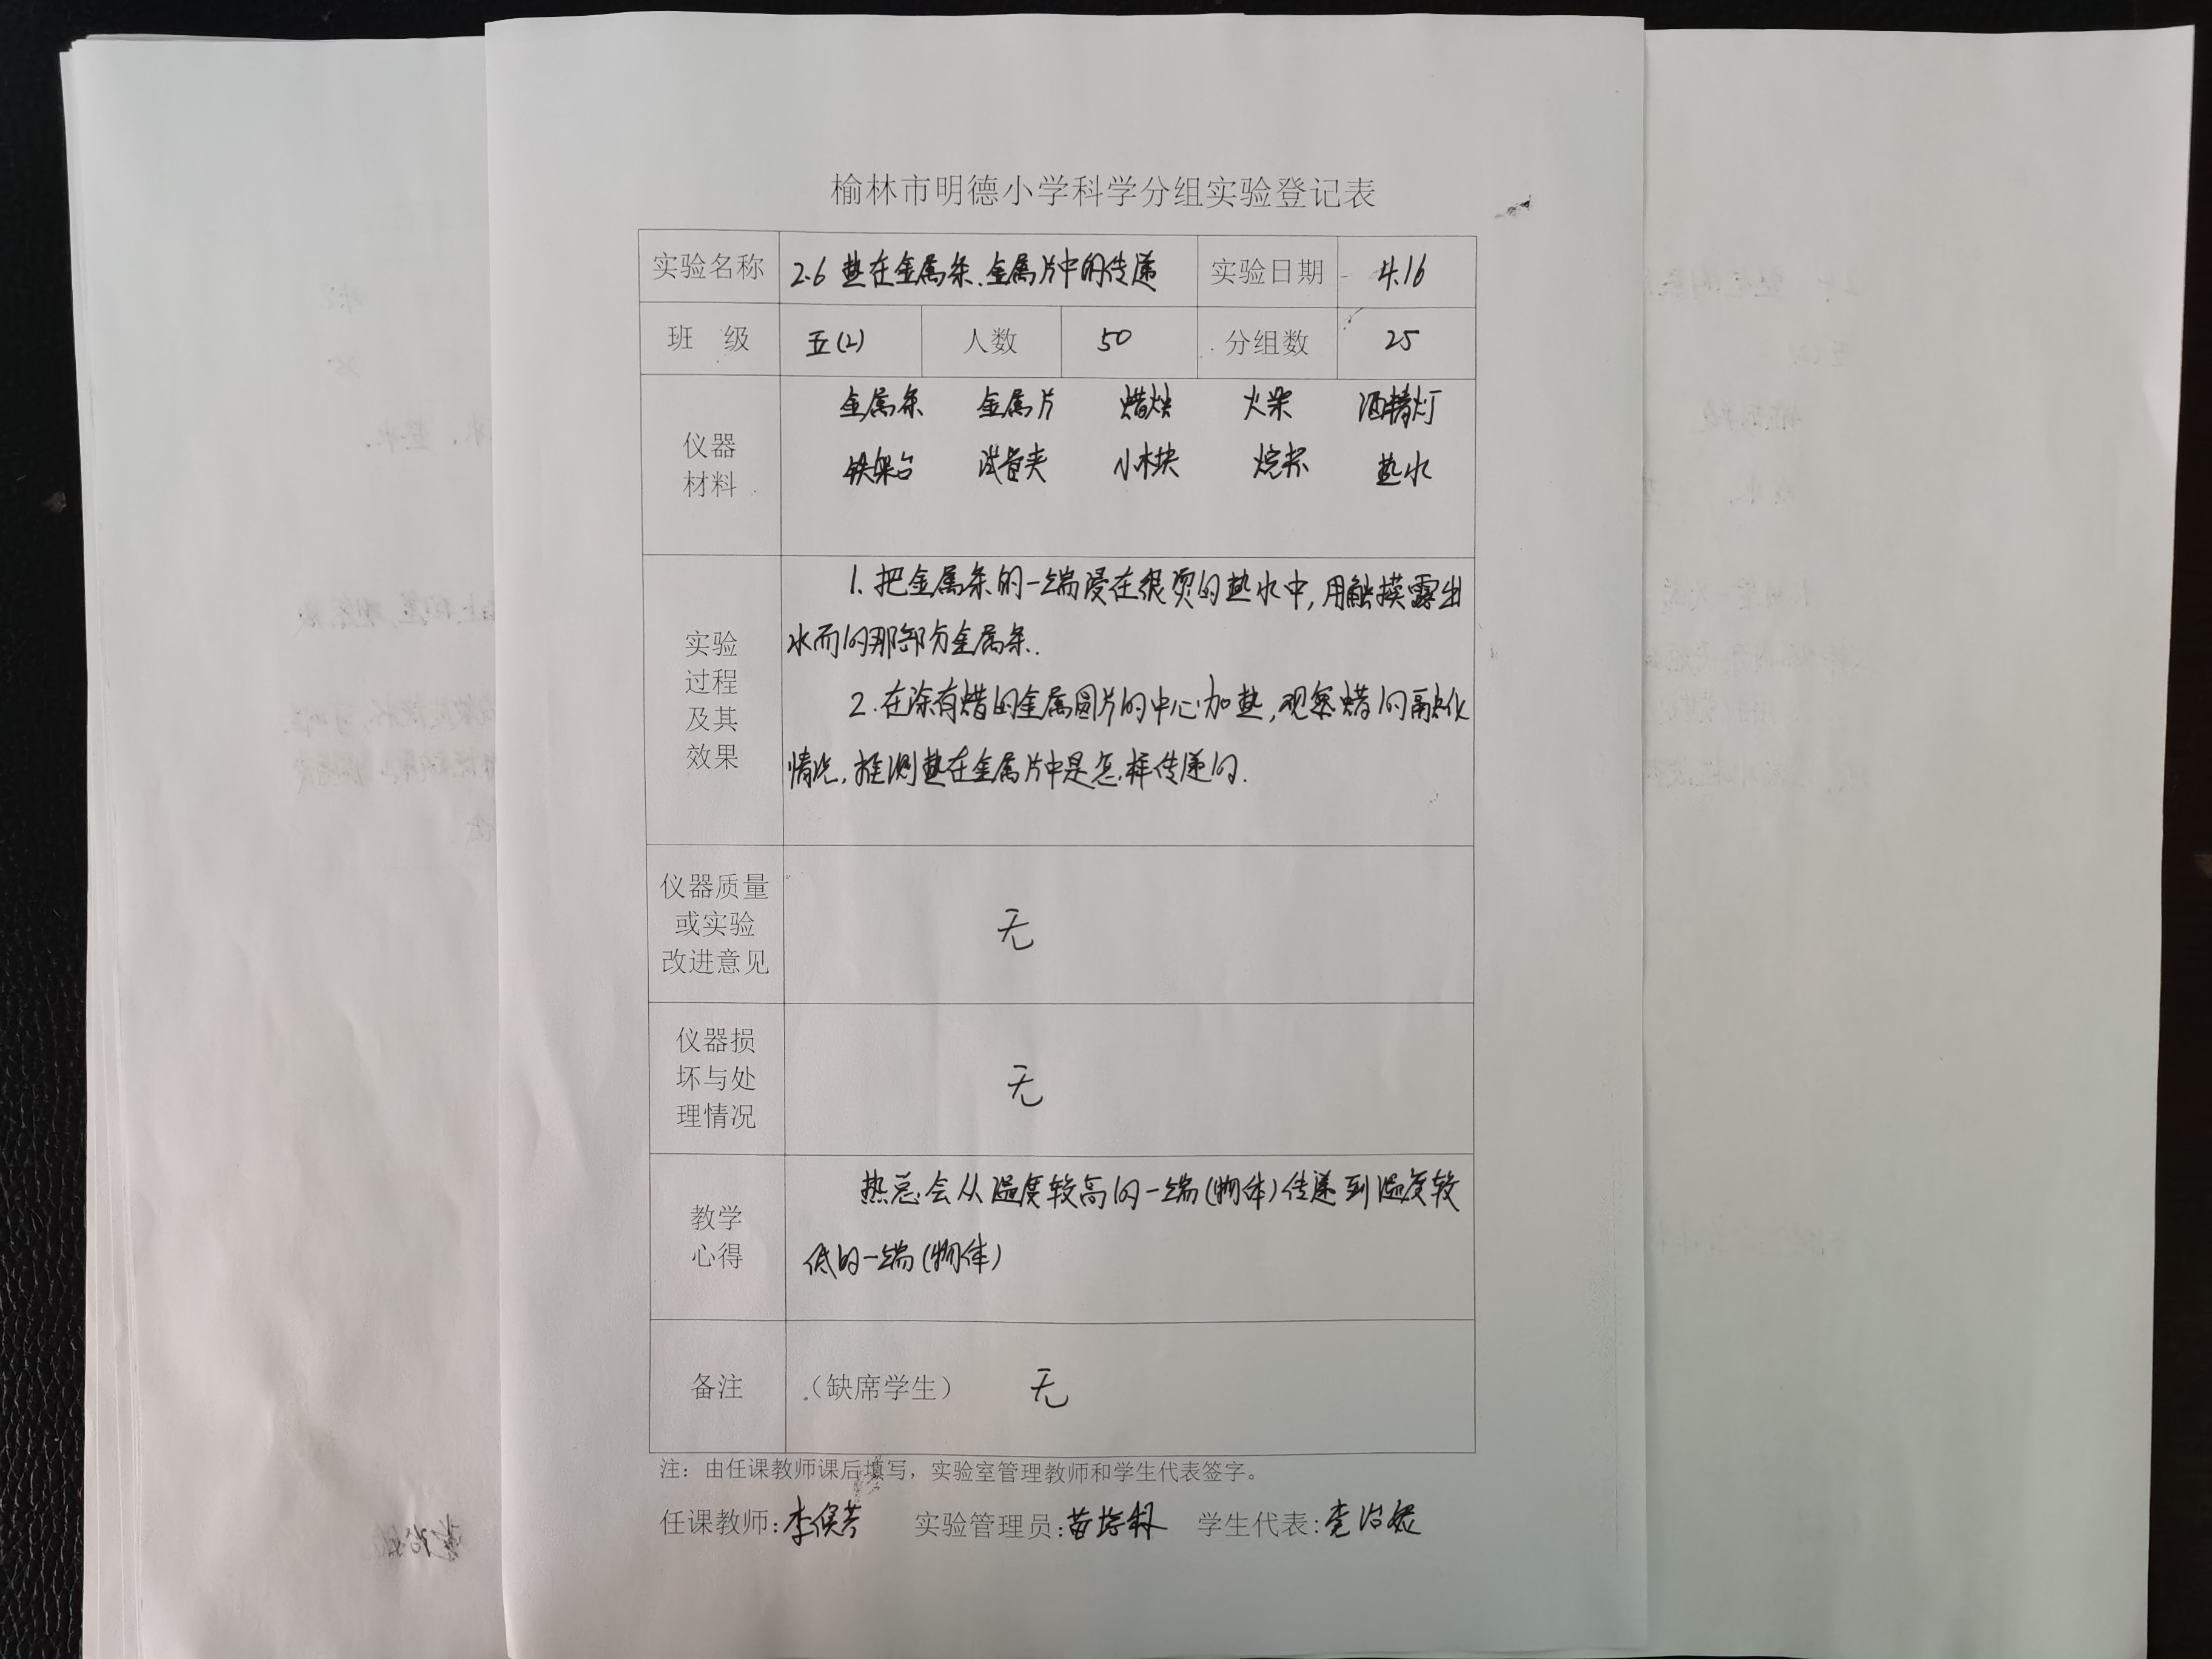 榆林市明德小学科学分组实验登记表
实验名称 2.6 热在金属条、金属片中的传递 实验日期 4.16
班 级 五(2) 人数 50 分组数 25
仪器
材料
金属条 金属片 蜡烛 火柴 酒精灯
铁架台 试管夹 小木块 烧杯 热水
实验
过程
及其
效果
1. 把金属条的一端浸在很烫的热水中,用触摸露出
水面的那部分金属条.
2. 在涂有蜡的金属圆片的中心加热,观察蜡的融化
情况,推测热在金属片中是怎样传递的.
仪器质量
或实验
改进意见
无
仪器损
坏与处
理情况
无
教学
心得
热总会从温度较高的一端(物体)传递到温度较
低的一端(物体)
备注 (缺席学生) 无
注：由任课教师课后填写，实验室管理教师和学生代表签字。
任课教师: 李 实验管理员: 苗 学生代表: